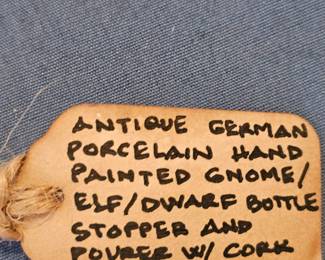 ANTIQUE GERMAN
PORCELAIN HAND
PAINTED GNOME/
ELF/DWARF BOTTLE
STOPPER AND
POURER W/ CORK